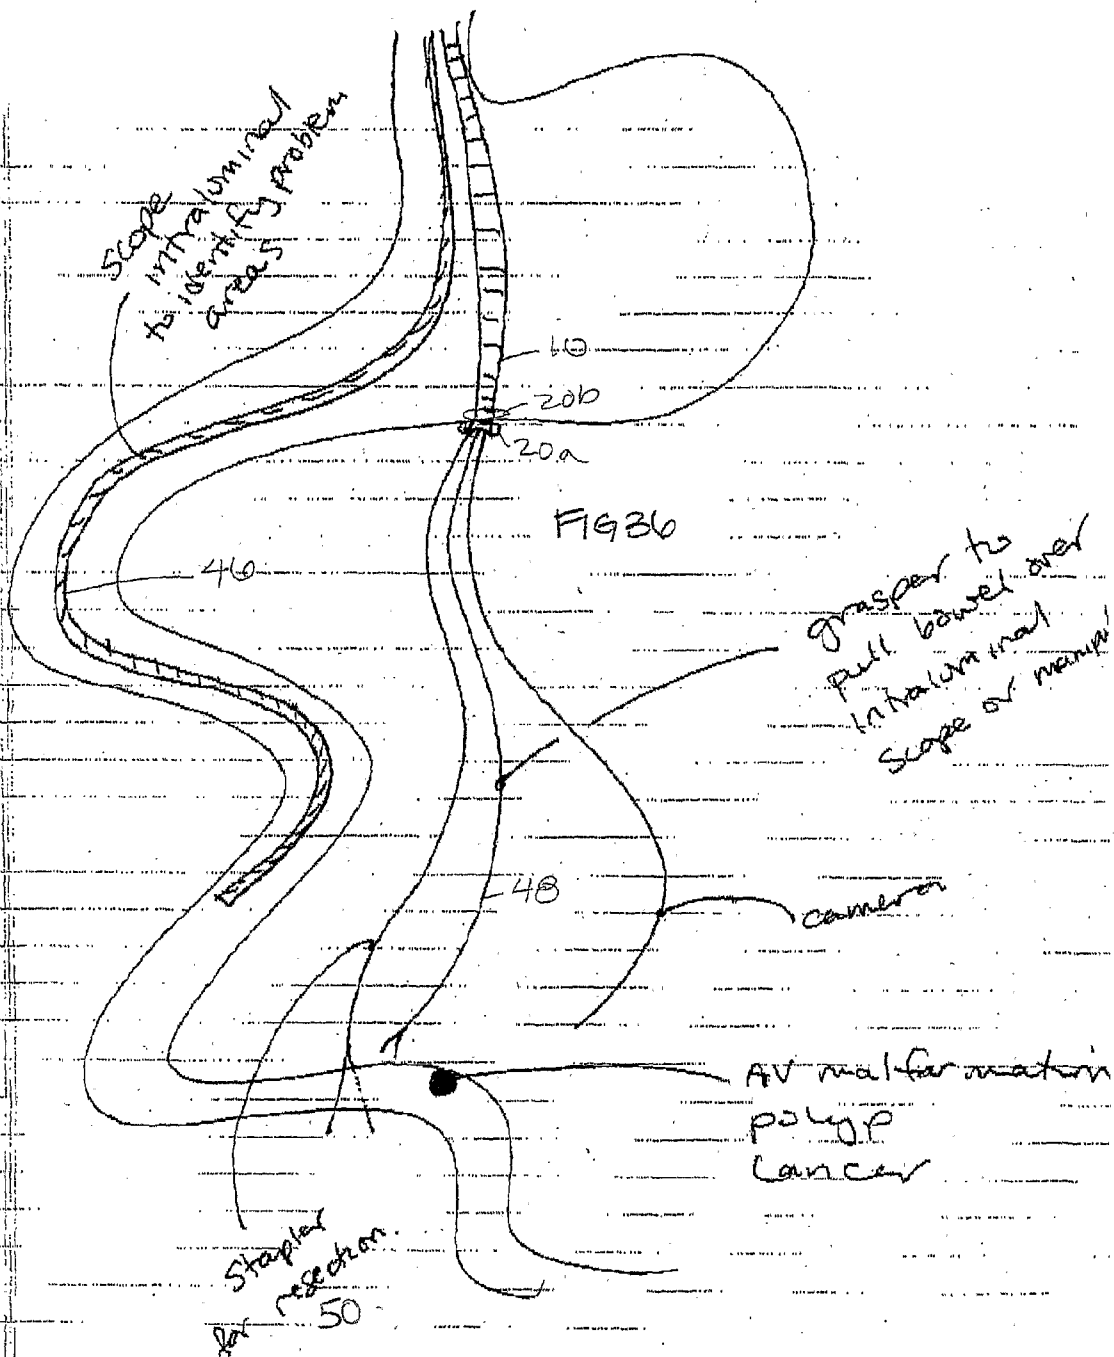 Scope
intraluminal
to identify problem
areas
10
20b
20a
FIG 36
46
grasper to
pull bowel over
intraluminal
scope or manipu
48
camera
AV malformation
polyp
Cancer
Stapler
for resection.
50